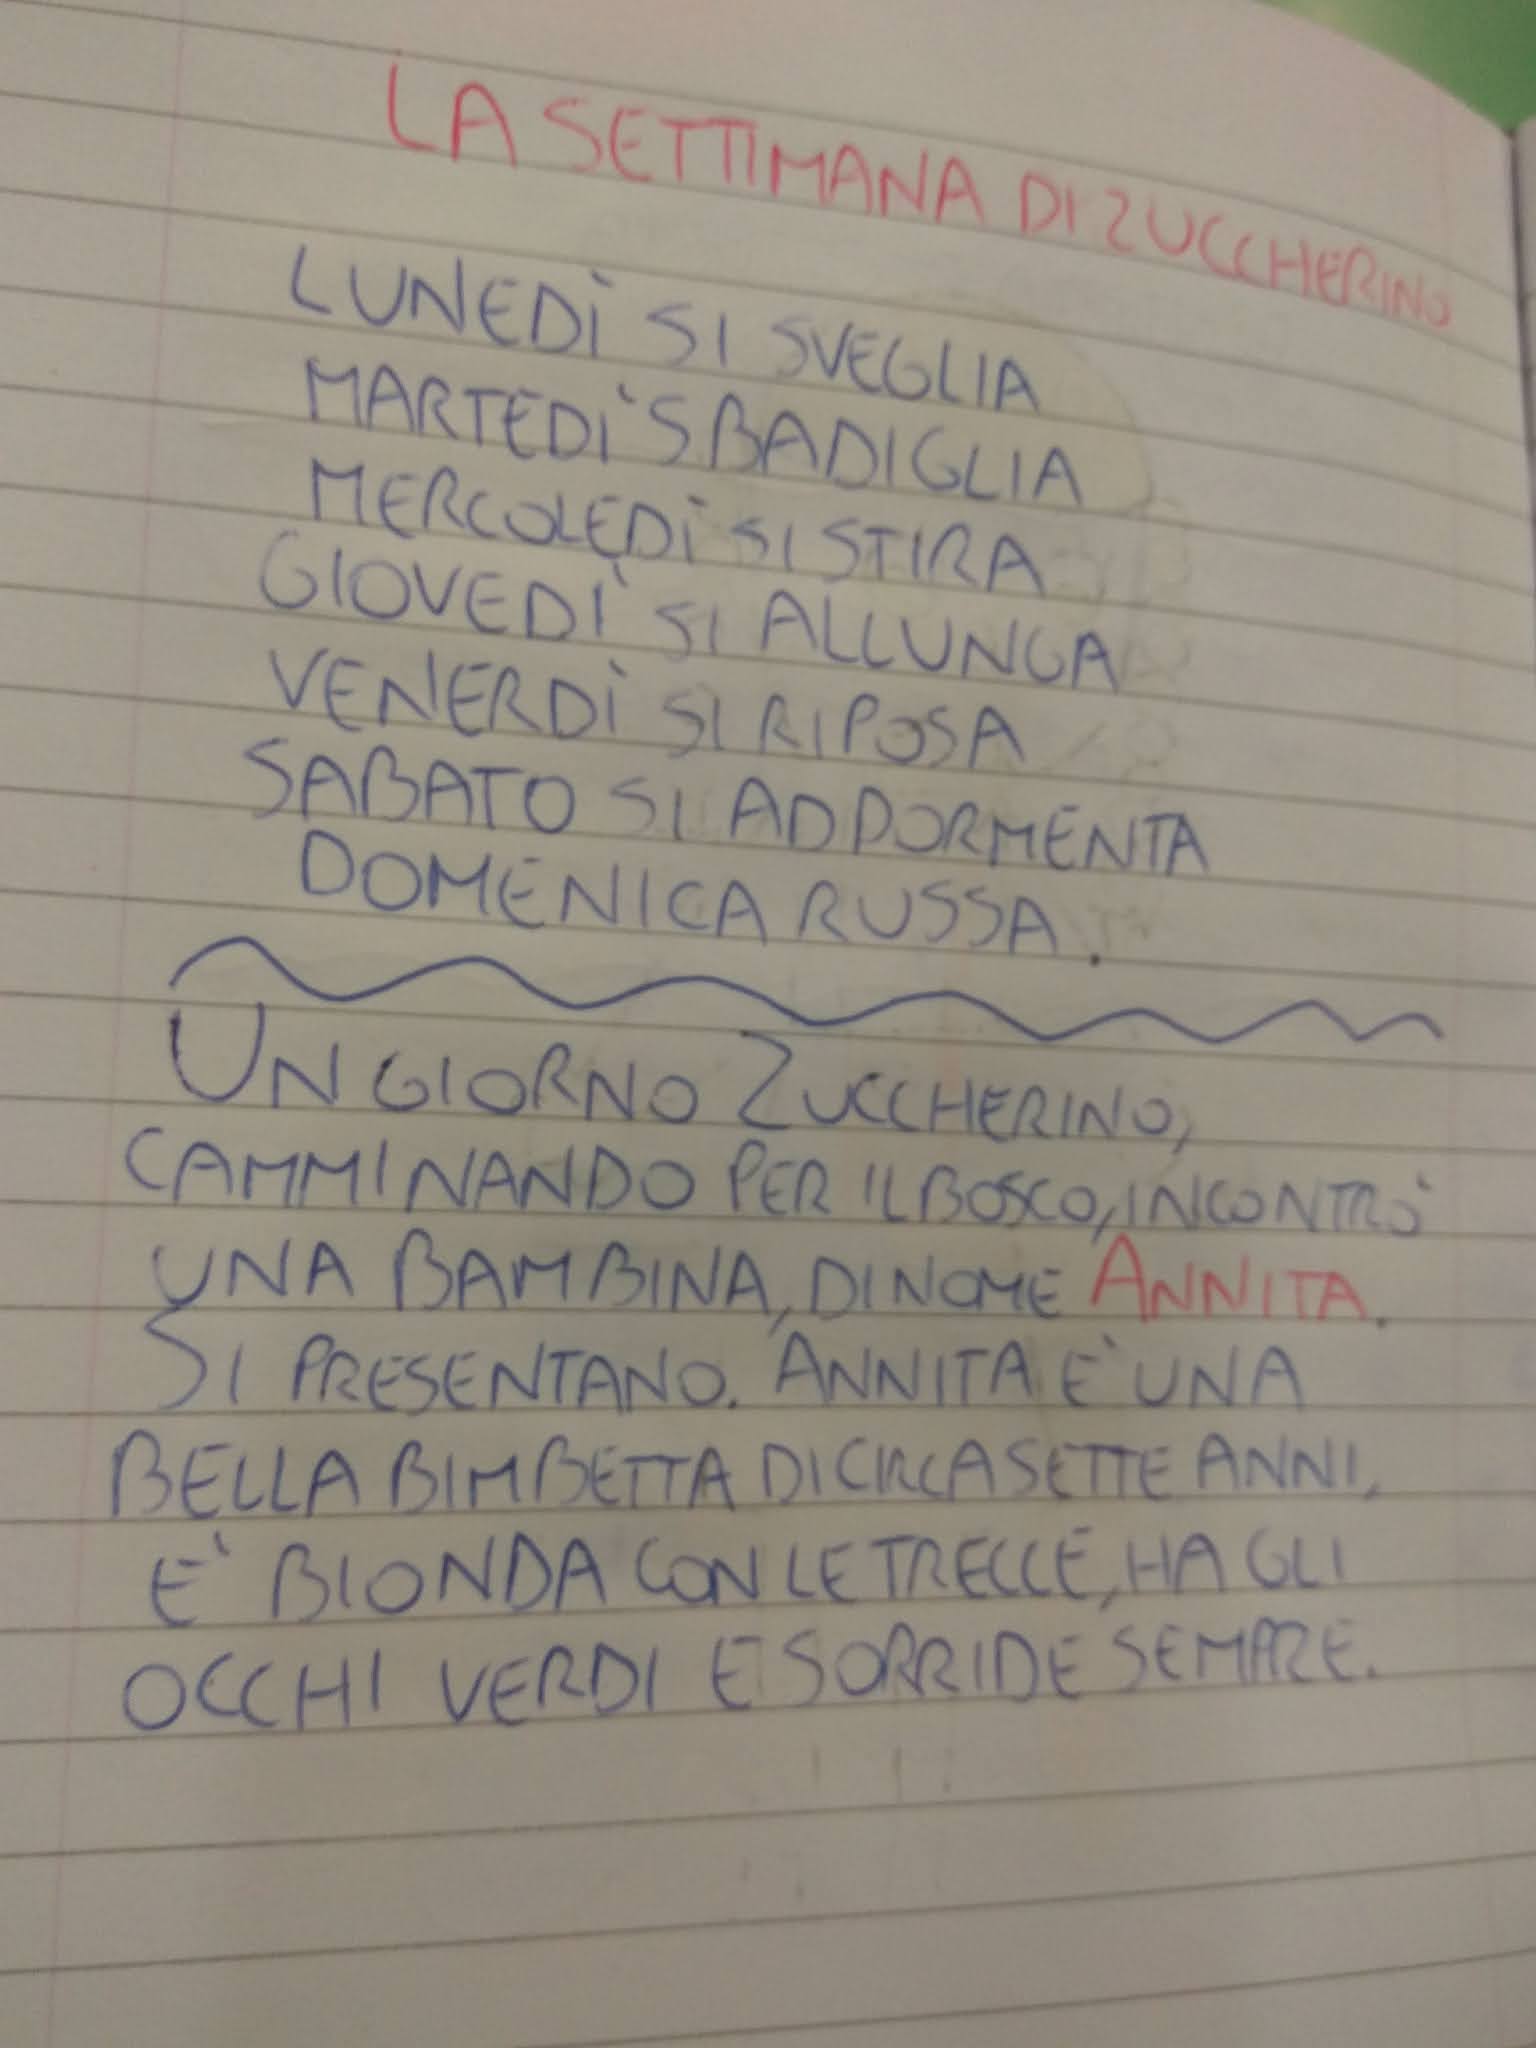 LA SETTIMANA DI ZUCCHERINO
LUNEDÌ SI SVEGLIA
MARTEDÌ SBADIGLIA
MERCOLEDÌ SI STIRA
GIOVEDÌ SI ALLUNGA
VENERDÌ SI RIPOSA
SABATO SI ADDORMENTA
DOMENICA RUSSA.
UN GIORNO ZUCCHERINO,
CAMMINANDO PER IL BOSCO, INCONTRÒ
UNA BAMBINA, DI NOME ANNITA.
SI PRESENTANO. ANNITA E' UNA
BELLA BIMBETTA DI CIRCA SETTE ANNI,
E' BIONDA CON LE TRECCE, HA GLI
OCCHI VERDI E SORRIDE SEMPRE.